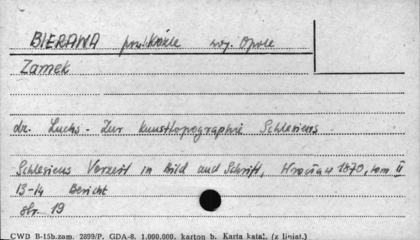 BIERAWA pow. Koźle woj. Opole
Zamek
dr. Luchs - Zur Kunsttopographie Schlesiens
Schlesiens Vorzeit in Bild und Schrift, Wrocław 1870, tom II
13-14 Bericht
str. 19
CWD B-15b.zam. 2899/P. GDA-8. 1.000.000. karton b. Karta katal. (z liniat.)